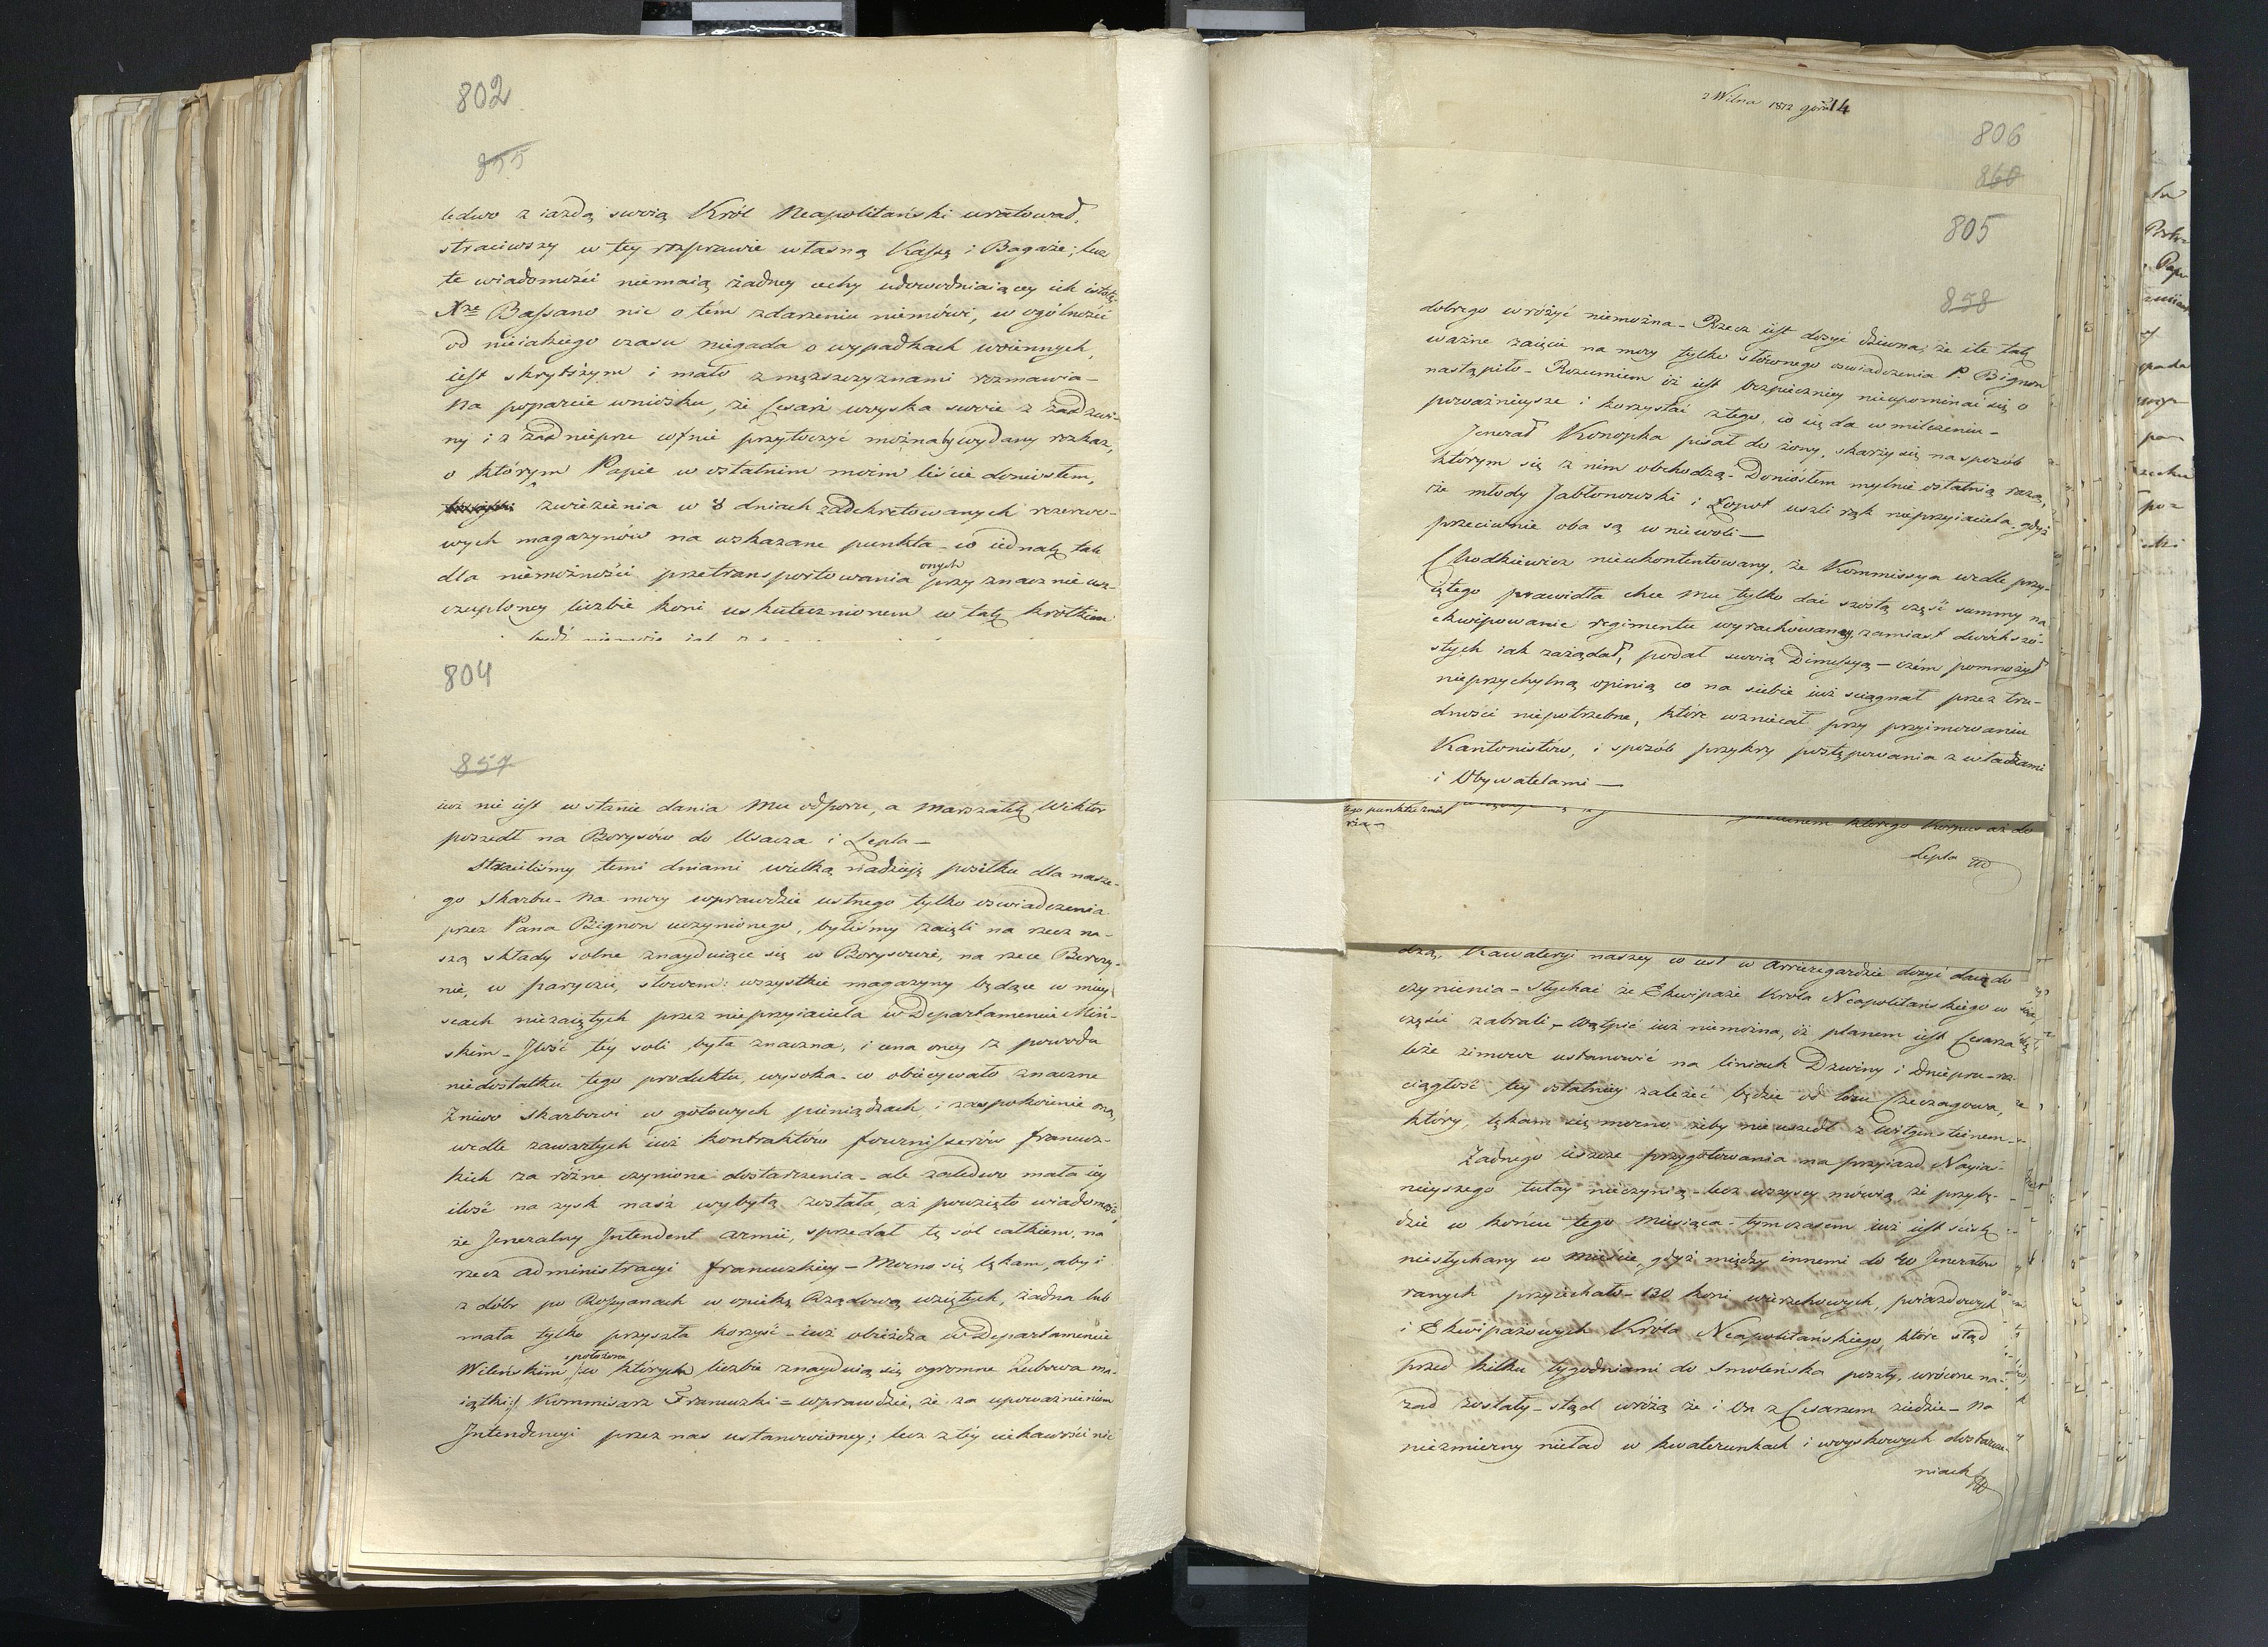 802
855
ledwo z iazdą swoią Król Neapolitański uratował,
straciwszy w tey rozprawie własną Kassę i Bagaże; lecz
te wiadomości niemaią żadney cechy udowodniaiącey ich istotę.
Xże Bassano nic o tém zdarzeniu niemówi, w ogólności
od nieiakiego czasu niegada o wypadkach woiennych,
iest skrytszym i mało z męższczyznami rozmawia –
Na poparcie wniosku, że Cesarz woyska swoie z zadzwi-
ny i z zadnieprze cofnie przytoczyć możnaby wydany rozkaz,
o którym Papie w ostatnim moim liście doniosłem,
zwiezienia w 8 dniach zadekretowanych rezerwo-
wych magazynów na wskazane punkta – co iednak tak
dla niemożności przetransportowania onych przy znacznie usz-
czuploney liczbie koni uskutecznionem w tak krótkim
804
857
iuż nie iest w stanie dania Mu odporu, a Marszałek Wiktor
poszedł na Borysów do Usacza i Lepla –
Straciliśmy temi dniami wielką nadzieję posiłku dla nasze-
go Skarbu – Na mocy wprawdzie ustnego tylko oświadczenia
przez Pana Bignon uczynionego, byliśmy zaięli na rzecz na-
szą składy solne znayduiące się w Borysowie, na rzece Berezy-
nie, w Paryczu, słowem: wszystkie magazyny będące w miey-
scach niezaiętych przez nieprzyiaciela w Departamencie Miń-
skim – Ilość téy soli była znaczna, i cena oney z powodu
niedostatku tego produktu, wysoka – co obiecywało znaczne
żniwo Skarbowi w gotowych pieniądzach i zaspokoienie oną,
wedle zawartych iuż kontraktów fournisserów francuz-
kich za różne czynione dostarczenia – ale zaledwo mała iey
ilość na zysk nasz wybytą została, aż powzięto wiadomość,
że Jeneralny Intendent armii, sprzedał tę sól całkiem, na
rzecz administracyi francuzkiey – Mocno się lękam, aby i
z dóbr po Rossyanach w opiekę Rządową wziętych, żadna lub
mała tylko przyszła korzyść – iuż obieżdża w Departamencie
Wileńskim położone /: w których liczbie znayduią się ogromne Zubowa ma-
iątki :/ Kommisarz Francuzki = wprawdzie, że za upoważnieniem
Intendencyi przez nas ustanowioney; lecz z téy ciekawości nic
z Wilna 1812 14
806
860
805
858
dobrego wróżyć niemożna – Rzecz iest dosyć dziwna, że ile tak
ważne zaięcie na mocy tylko słownego oświadczenia P. Bignon
nastąpiło – Rozumiem iż iest bezpieczniey nieupominać się o
poważnieysze i korzystać z tego, co się da w milczeniu –
Jenerał Konopka pisał do żony, skarży się na sposób
którym się z nim obchodzą – Doniosłem mylnie ostatnią razą,
że młody Jabłonowski i Łopot uszli rąk nieprzyiaciela, gdyż
przeciwnie oba są w niewoli –
Chodkiewicz nieukontentowany, że Kommissya wedle przy-
iętego prawidła chce mu tylko dać szóstą część summy na
ekwipowanie regimentu wyrachowaney, zamiast dwóch szó-
stych iak zażądał, podał swoią Dimissyą – czém pomnożył
nieprzychylną opinią co na siebie iuż sciągnął przez tru-
dności niepotrzebne, które wzniecał przy przyimowaniu
Kantonistów, i sposób przykry postępowania z władzami
i Obywatelami –
tego punktu
którego Korpus aż do
Lepla
dzą, Kawaleryi naszey co iest w Arrieregardzie dosyć daią do
czynienia – Słychać że Ekwipaże Króla Neapolitańskiego w
części zabrali – Wątpić iuż niemożna, iż planem iest Cesarza
leże zimowe ustanowić na liniach Dzwiny i Dniepru – na
ciągłość tey ostatniey zależeć będzie od losu Czeczagowa,
który, lękam się mocno żeby nie uszedł z Witgensteinem –
Żadnego ieszcze przygotowania na przyiazd Nayia-
nieyszego tutay nieczynią – lecz wszyscy mówią że przybę-
dzie w końcu tego miesiąca – tymczasem iuż iest ścisk
niesłychany w mieście, gdyż między innemi do 40 Jenerałów
ranych przyiechało – 130 koni wierzchowych, poiazdowych
i Ekwipażowych Króla Neapolitańskiego, które stąd
przed kilku tygodniami do Smoleńska poszły, wrócone na-
zad zostały – stąd wróżą że i On z Cesarzem ziedzie – Na
niezmierny nieład w kwaterunkach i woyskowych dostarcze-
niach